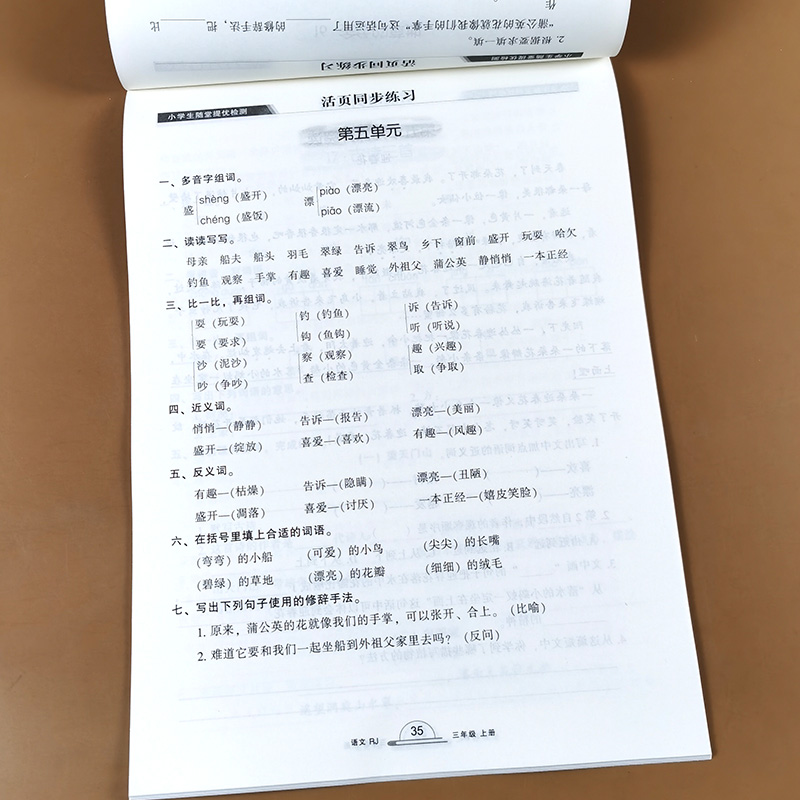 作
"蒲公英的花就像我们的手掌"这句话运用了______的修辞手法，把______比
2. 根据要求填一填。
小学生随堂提优检测
活页同步练习
小学生随堂提优检测
活页同步练习
第五单元
一、多音字组词。
盛 shèng (盛开) 漂 piào (漂亮)
chéng (盛饭) piāo (漂流)
二、读读写写。
母亲 船夫 船头 羽毛 翠绿 告诉 翠鸟 乡下 窗前 盛开 玩耍 哈欠
钓鱼 观察 手掌 有趣 喜爱 睡觉 外祖父 蒲公英 静悄悄 一本正经
三、比一比，再组词。
耍 (玩耍) 钓 (钓鱼) 诉 (告诉)
要 (要求) 钩 (鱼钩) 听 (听说)
沙 (泥沙) 察 (观察) 趣 (兴趣)
吵 (争吵) 查 (检查) 取 (争取)
四、近义词。
悄悄—(静静) 告诉—(报告) 漂亮—(美丽)
盛开—(绽放) 喜爱—(喜欢) 有趣—(风趣)
五、反义词。
有趣—(枯燥) 告诉—(隐瞒) 漂亮—(丑陋)
盛开—(凋落) 喜爱—(讨厌) 一本正经—(嬉皮笑脸)
六、在括号里填上合适的词语。
(弯弯) 的小船 (可爱) 的小鸟 (尖尖) 的长嘴
(碧绿) 的草地 (漂亮) 的花瓣 (细细) 的绒毛
七、写出下列句子使用的修辞手法。
1. 原来，蒲公英的花就像我们的手掌，可以张开、合上。(比喻)
2. 难道它要和我们一起坐船到外祖父家里去吗？(反问)
语文 RJ 35 三年级 上册